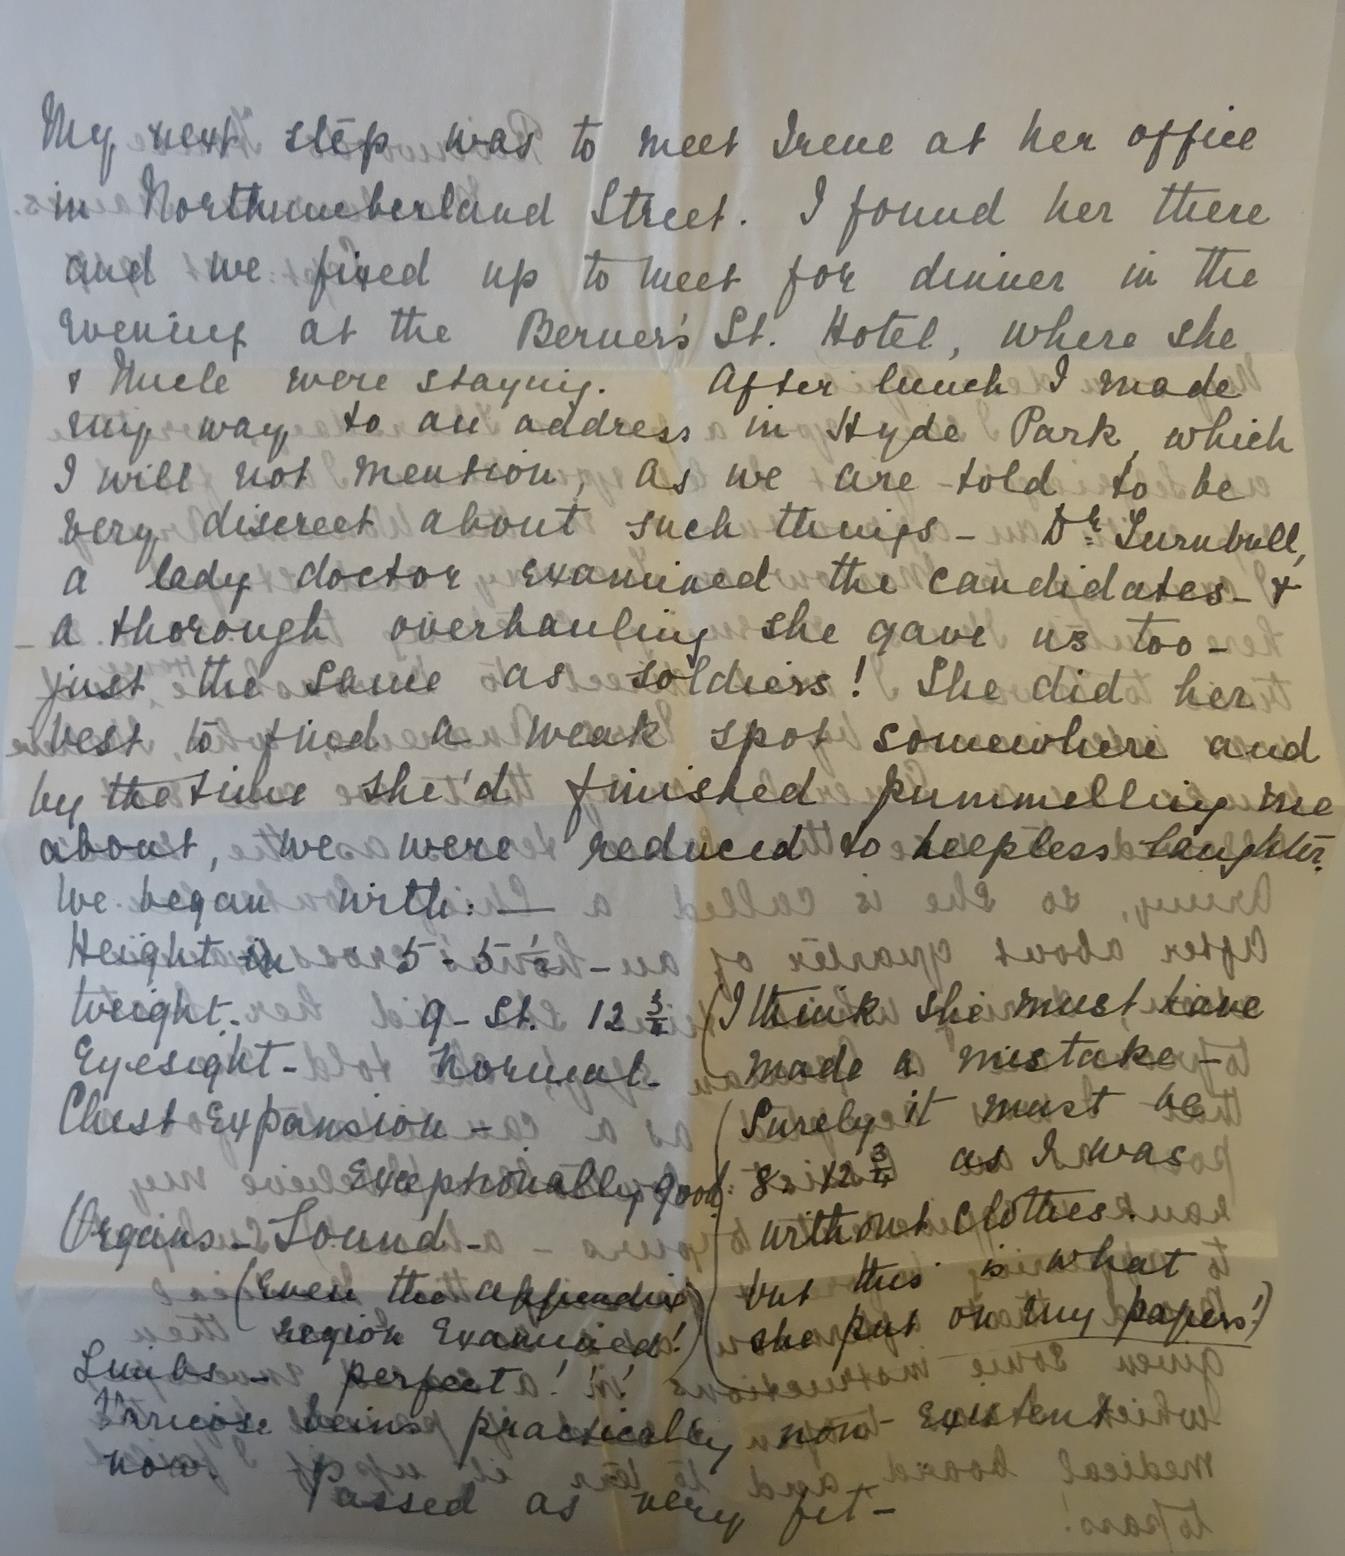 My next step was to meet Irene at her office
in Northumberland Street. I found her there
and we fixed up to meet for dinner in the
evening at the Berner's St. Hotel, where she
& Uncle were staying. After lunch I made
my way to an address in Hyde Park, which
I will not mention, as we are told to be
very discreet about such things - Dr. Turnbull,
a lady doctor examined the candidates - &
- a thorough overhauling she gave us too -
just the same as soldiers! She did her
best to find a weak spot somewhere and
by the time she'd finished pummelling me
about, we were reduced to helpless laughter.
We began with: —
Height in 5 - 5½ -
Weight. 9 - St. 12 ¾
Eyesight - Normal.
Chest Expansion -
Exceptionally good.
Organs - Sound -
(Even the appendix
region examined!)
(I think she must have
made a mistake -
Surely it must be
8. 12 ¾ as I was
without clothes.
but this is what
she put on my papers!)
Limbs - perfect! ! !
Varicose veins practically non-existent
now. Passed as very fit -